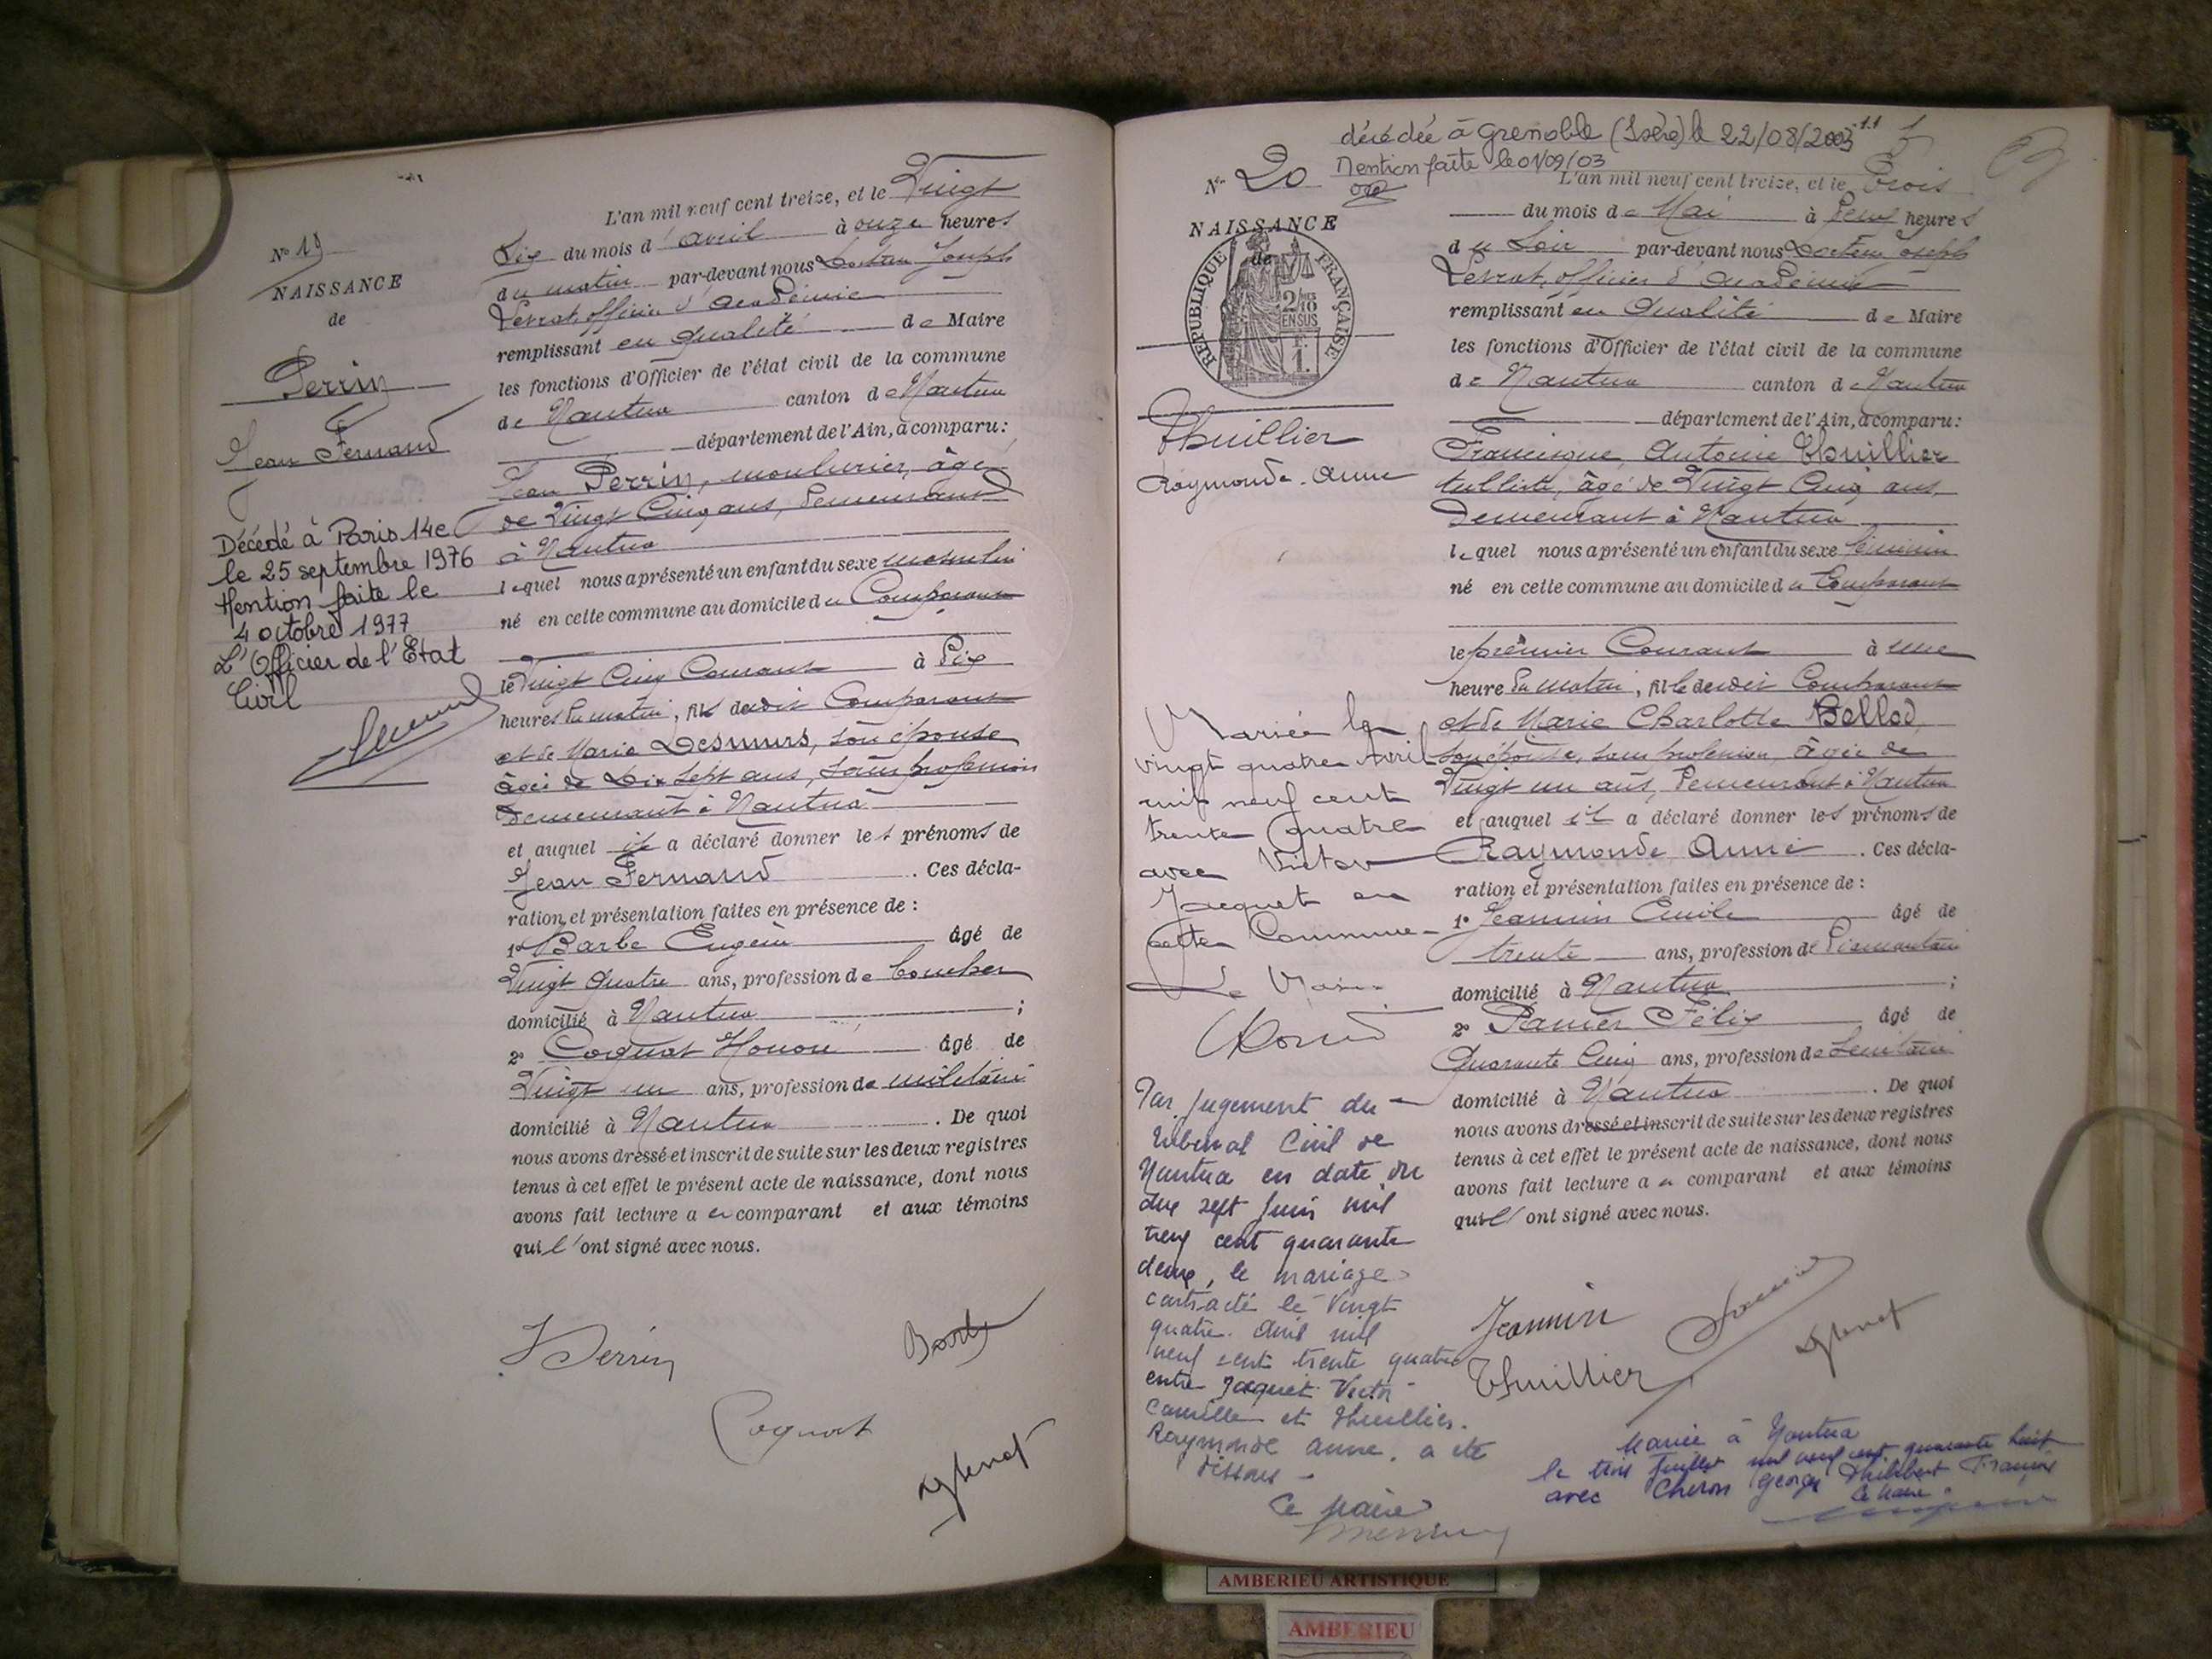 N° 19
NAISSANCE
de
Perrin
Jean Fernand
Décédé à Paris 14e
le 25 septembre 1976
Mention faite le
4 octobre 1977
L'Officier de l'Etat
Civil
L'an mil neuf cent treize, et le Vingt
Six du mois d'avril à onze heures
du matin par-devant nous Docteur Joseph
Levrat, officier d'académie
remplissant en qualité de Maire
les fonctions d'Officier de l'état civil de la commune
de Nantua canton de Nantua
département de l'Ain, a comparu:
Jean Perrin, moulurier, âgé
de Vingt Cinq ans, demeurant
à Nantua
lequel nous a présenté un enfant du sexe masculin
né en cette commune au domicile du Comparant
le Vingt Cinq Courant à Six
heures du matin, fils dudit Comparant
et de Marie Desmurs, son épouse
âgée de Dix sept ans, sans profession
demeurant à Nantua
et auquel il a déclaré donner les prénoms de
Jean Fernand . Ces décla-
ration et présentation faites en présence de :
1° Barbe Eugène âgé de
Vingt quatre ans, profession de boucher
domicilié à Nantua ;
2° Coquat Honoré âgé de
Vingt un ans, profession de militaire
domicilié à Nantua . De quoi
nous avons dressé et inscrit de suite sur les deux registres
tenus à cet effet le présent acte de naissance, dont nous
avons fait lecture au comparant et aux témoins
qui l'ont signé avec nous.
J Perrin
Coquat
décédée à Grenoble (Isère) le 22/08/2003
Mention faite le 01/09/03
N° 20
NAISSANCE
de
RÉPUBLIQUE FRANÇAISE
2/10
EN SUS
1
Thuillier
Raymonde Anne
Mariée le
vingt quatre Avril
mil neuf cent
trente quatre
avec Victor
Jacquet en
cette Commune
Le Maire
Par jugement du
tribunal Civil de
Nantua en date du
dix sept Juin mil
neuf cent quarante
deux, le mariage
contracté le Vingt
quatre Avril mil
neuf cent trente quatre
entre Jacquet Victor
Camille et Thuillier
Raymonde Anne, a été
dissous
Le Maire
L'an mil neuf cent treize, et le Trois
du mois de Mai à heures
du Soir par-devant nous Docteur Joseph
Levrat, officier d'académie
remplissant en qualité de Maire
les fonctions d'Officier de l'état civil de la commune
de Nantua canton de Nantua
département de l'Ain, a comparu:
Francisque Antoine Thuillier
tulliste, âgé de Vingt Cinq ans,
demeurant à Nantua
lequel nous a présenté un enfant du sexe féminin
né en cette commune au domicile du Comparant
le premier Courant à une
heure du matin, fille dudit Comparant
et de Marie Charlotte Bellod,
son épouse, sans profession, âgée de
Vingt un ans, demeurant à Nantua
et auquel il a déclaré donner les prénoms de
Raymonde Anne . Ces décla-
ration et présentation faites en présence de :
1° Jeannin Emile âgé de
trente ans, profession de
domicilié à Nantua ;
2° Félix âgé de
Quarante Cinq ans, profession de
domicilié à Nantua . De quoi
nous avons dressé et inscrit de suite sur les deux registres
tenus à cet effet le présent acte de naissance, dont nous
avons fait lecture au comparant et aux témoins
qui l'ont signé avec nous.
Jeannin
Thuillier
Mariée à Nantua
le trois Juillet mil neuf cent quarante huit
avec Cheron Georges Philibert François
Le Maire
AMBERIEU ARTISTIQUE
AMBERIEU